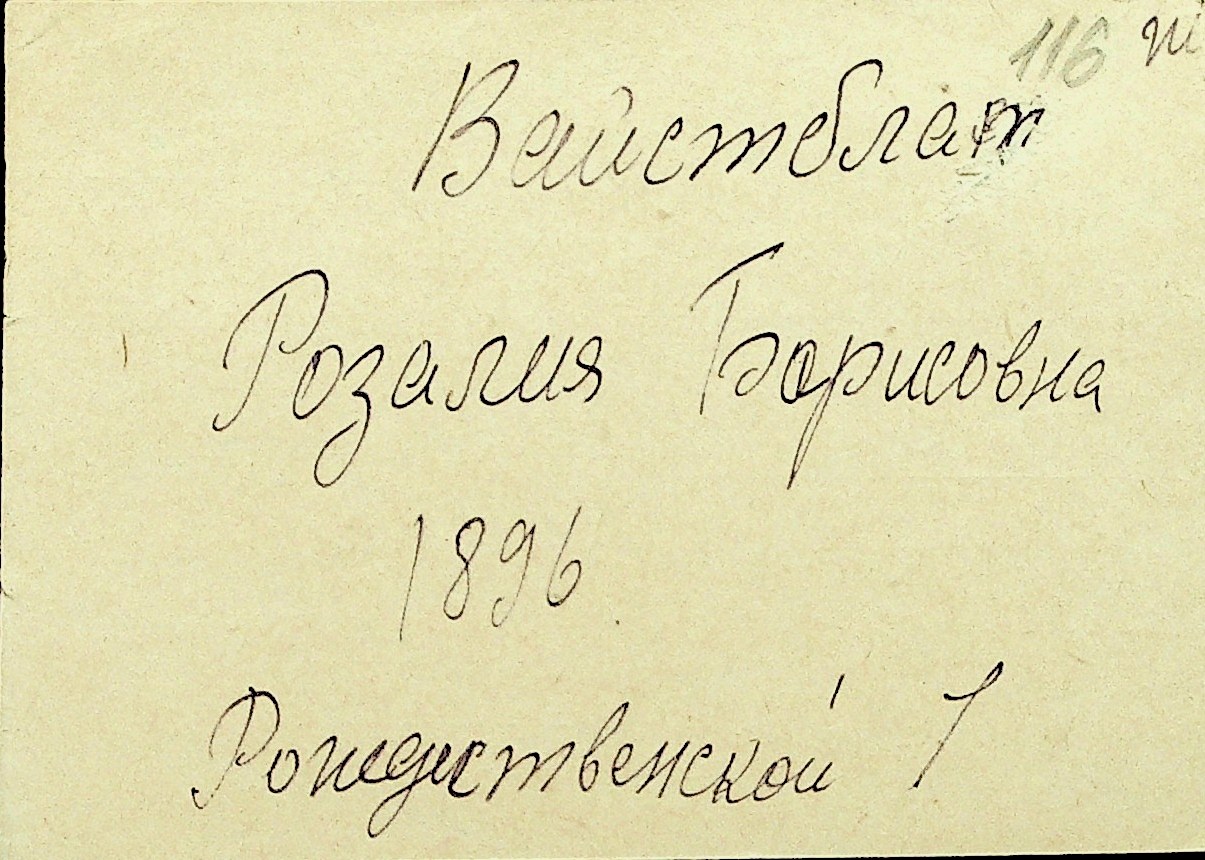 116
Вайстблат
Розалия Борисовна
1896
Рождественской 1